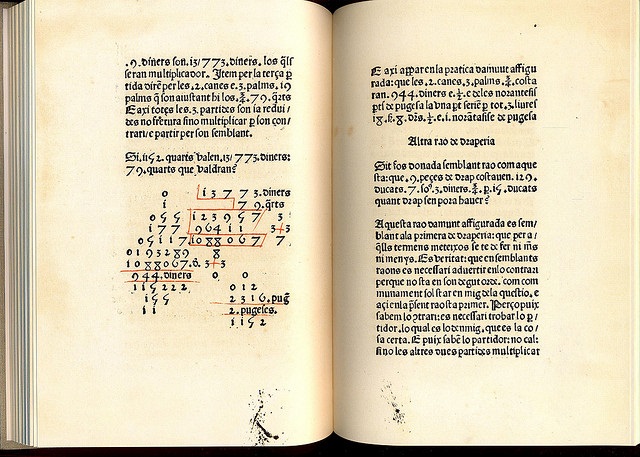 .9. diners son. 13/773. diners. los q̃ls
seran multiplicador. Jtem per la terça p̱
tida dire per les .2. canes e .3. palms .19
palms q̃ son aiustant hi los .¾. 79. q̃rts
E axi totes les .3. partides son ia redui/
des no fretura sino multiplicar p̱ son con
trari/ e partir per son semblant.
Si. 1152. quarts valen. 13/773. diners:
79. quarts que valdran?
0 1 3 7 7 3. diners
1 7 9. q̃rts
0 5 5 1 2 3 9 5 7 3
1 7 7 9 6 4 1 1 3+3
0 5 1 1 7 1 0 8 8 0 6 7 7
0 1 9 3 2 8 9 8
1 0 8 8 0 6 7. 6. 3+3
9 4 4. diners 0. 0
1 1 5 2 2 2 0 1 2
1 5 5 2 3 1 6. pug̃
1 1 2. pugeses.
1 1 5 2
E axi appar en la pratica damunt affigu
rada: que les .2. canes .3. palms. ¾. costa
ran. 944. diners e .½. e de les
pts̃ de pugesa la vna pt̃ seriẽ p̱ tot .3. liures
18. ẞ. 8. drs̃. ½. e .1. norãtasise de pugesa
Altra rao de draperia
Sit fos donada semblant rao com aque
sta: que .9. peçes de drap costauen. 129.
ducats. 7. so⁹. 3. diners. ¾. p̱. 15. ducats
quant drap sen pora hauer?
Aquesta rao damunt affigurada es sem/
blant ala primera de draperia: que per a/
q̃lls termens meteixos se te de fer ni mẽs
ni menys. Es veritat: que en semblants
raons es necessari aduertir en lo contrari
perque no sta en son degut orde. com com
munament sol star en mig dela questio. e
açi en la p̃sent rao sta primer. Perço puix
sabem lo cõtrari: es necessari trobar lo p̱/
tidor. lo qual es lo den mig. que es la co/
sa certa. E puix sabẽ lo partidor: no cal:
sino les altres dues partides multiplicar